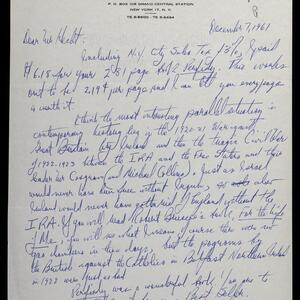 P. O. BOX 1313 GRAND CENTRAL STATION
NEW YORK 17, N. Y.
TE 8-8800 - TE 8-8434
December 7, 1961
Dear Mr Hecht:
Including N.Y. City Sales Tax I paid
$6.15 for your 281 page book Perfidy. This works
out to be 2.19¢ per page and I can tell you every page
is worth it.
I think the most interesting parallel studies in
contemporary history lies in the 1920-21 War against
Great Britain by Ireland and the tragic Civil War
of 1922-1923 between the I.R.A. and the Free Staters and their
leader Mr Cosgrave and Michael Collins. Just as Israel
would never have been free without Irgun, so also
Ireland would never have gotten rid of England without the
I.R.A. If you will read Robert Briscoe's book, For the Life
of Me, you will see what I mean, of course there were no
Gas chambers in those days, but the pograms by
the British against the Catholics in Belfast Northern Ireland
in 1922 were just as bad
Perfidy was a wonderful book!